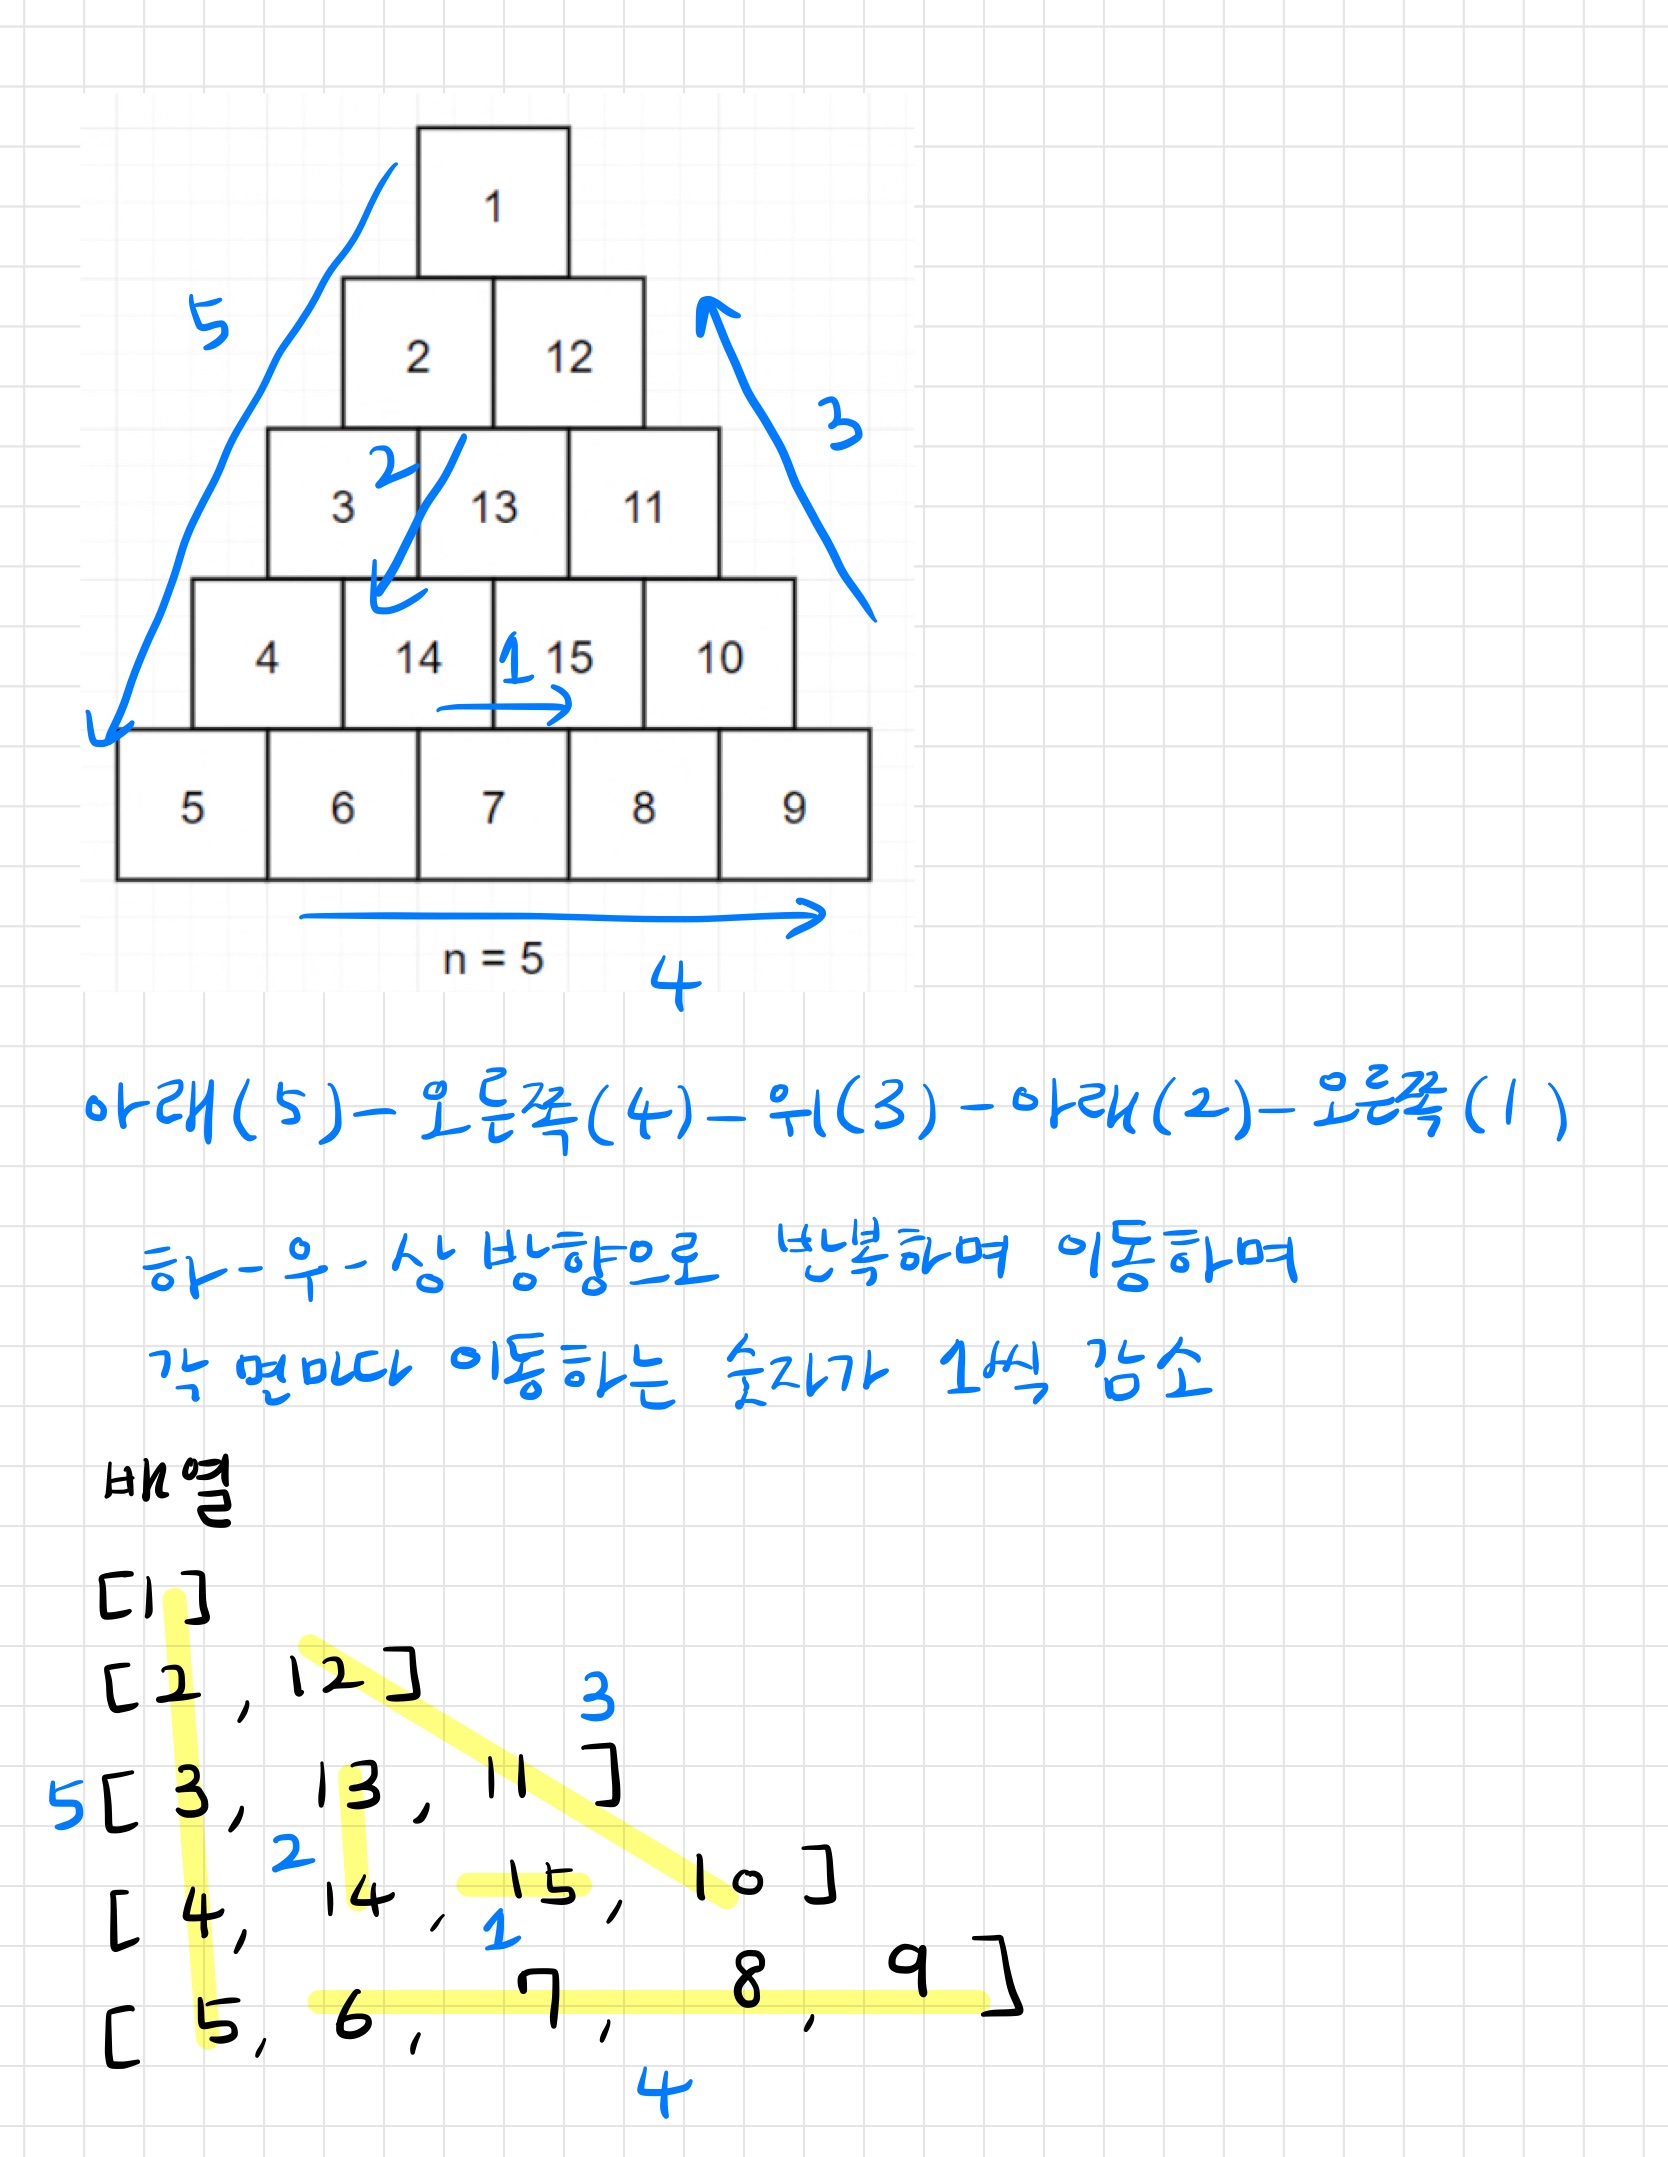 1
5
2 12
3
2
3 13 11
4 14 1 15 10
5 6 7 8 9
n = 5
4
아래(5)-오른쪽(4)-위(3)-아래(2)-오른쪽(1)
하-우-상 방향으로 반복하며 이동하며
각 면마다 이동하는 숫자가 1씩 감소
배열
[1]
[2, 12]
3
5 [3, 13, 11]
2
[4, 14, 15, 10]
1
[5, 6, 7, 8, 9]
4